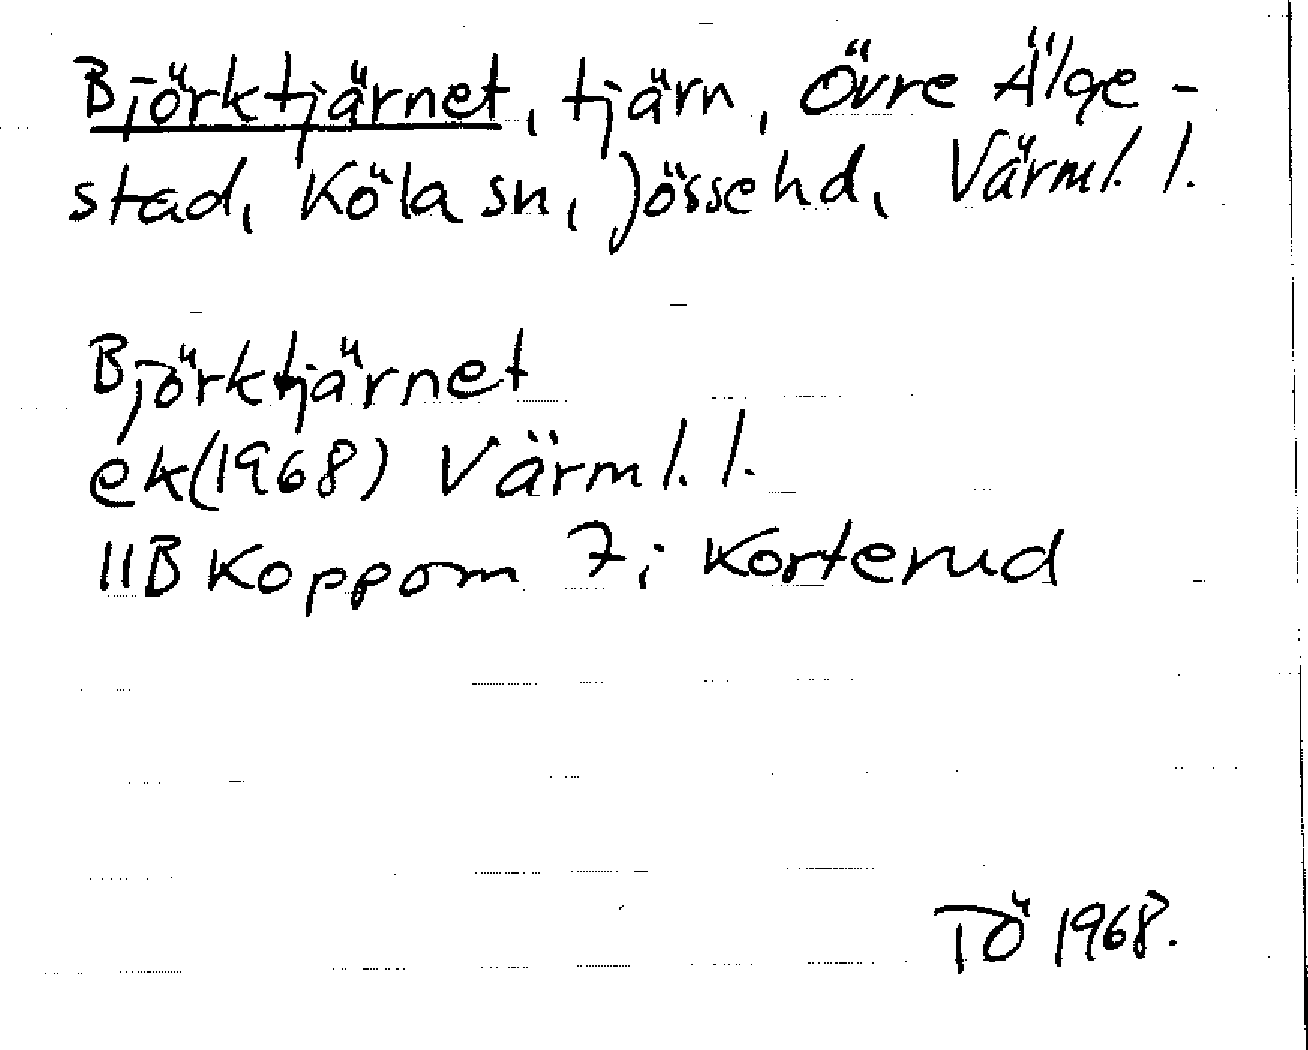 Björktjärnet, tjärn, Övre Älge-
stad, Köla sn, Jösse hd, Värml. l.
Björktjärnet
ek(1968) Värml. l.
11B Koppom 7i Korterud
TÖ 1968.